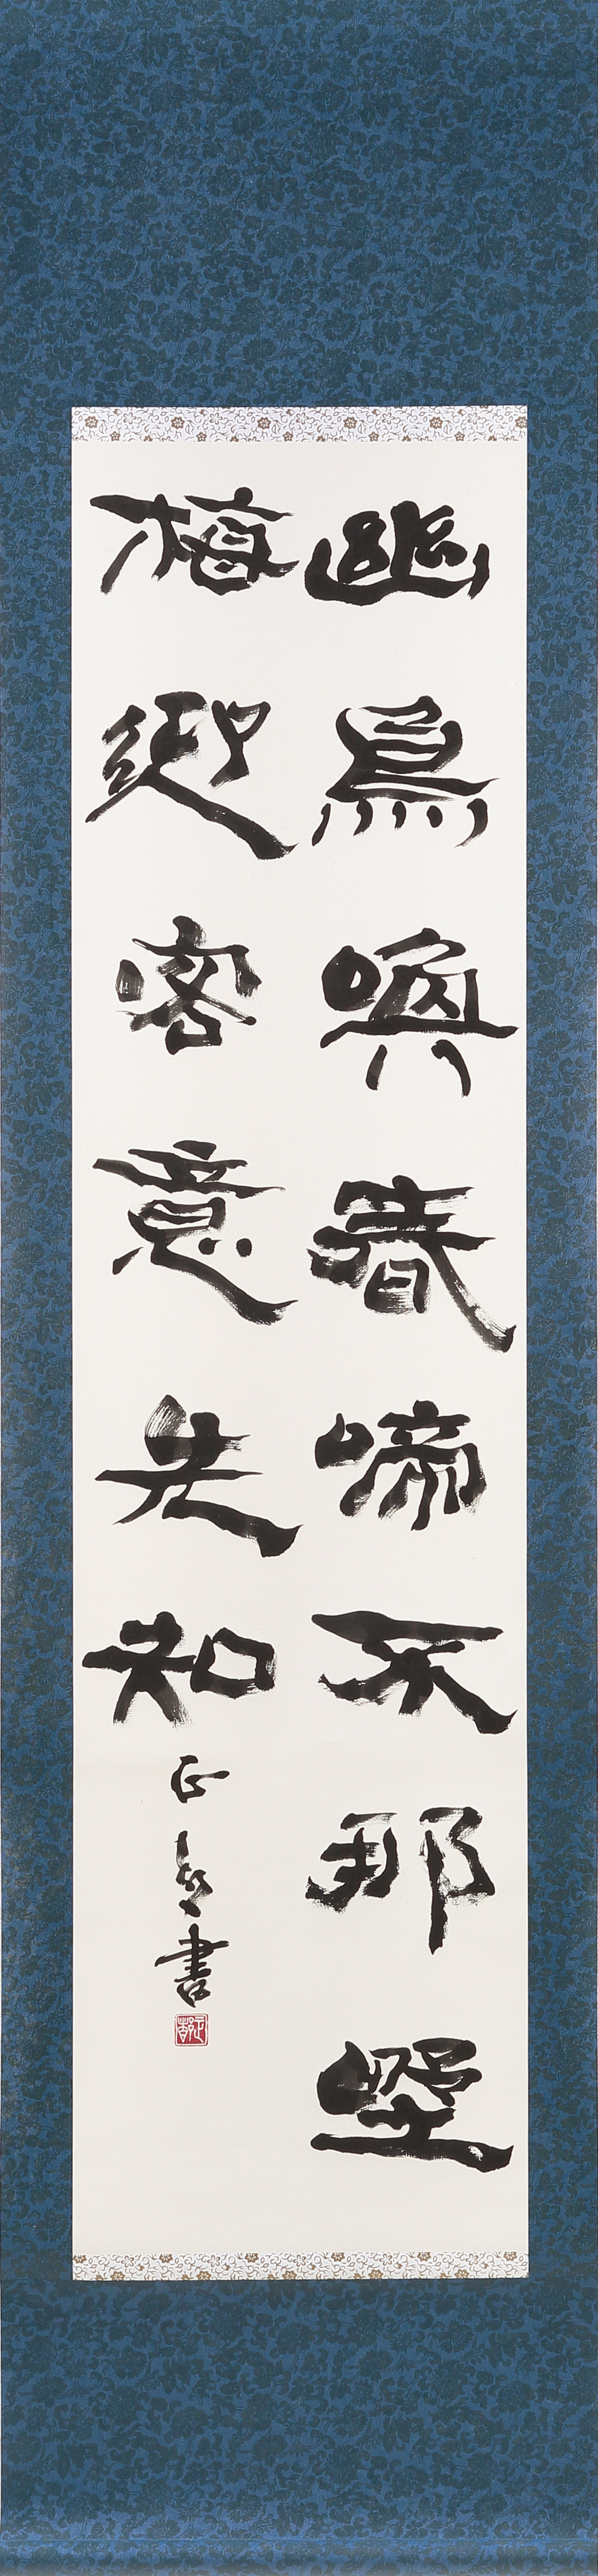 幽鳥喚春啼不那野
梅迎客意先知
正 書